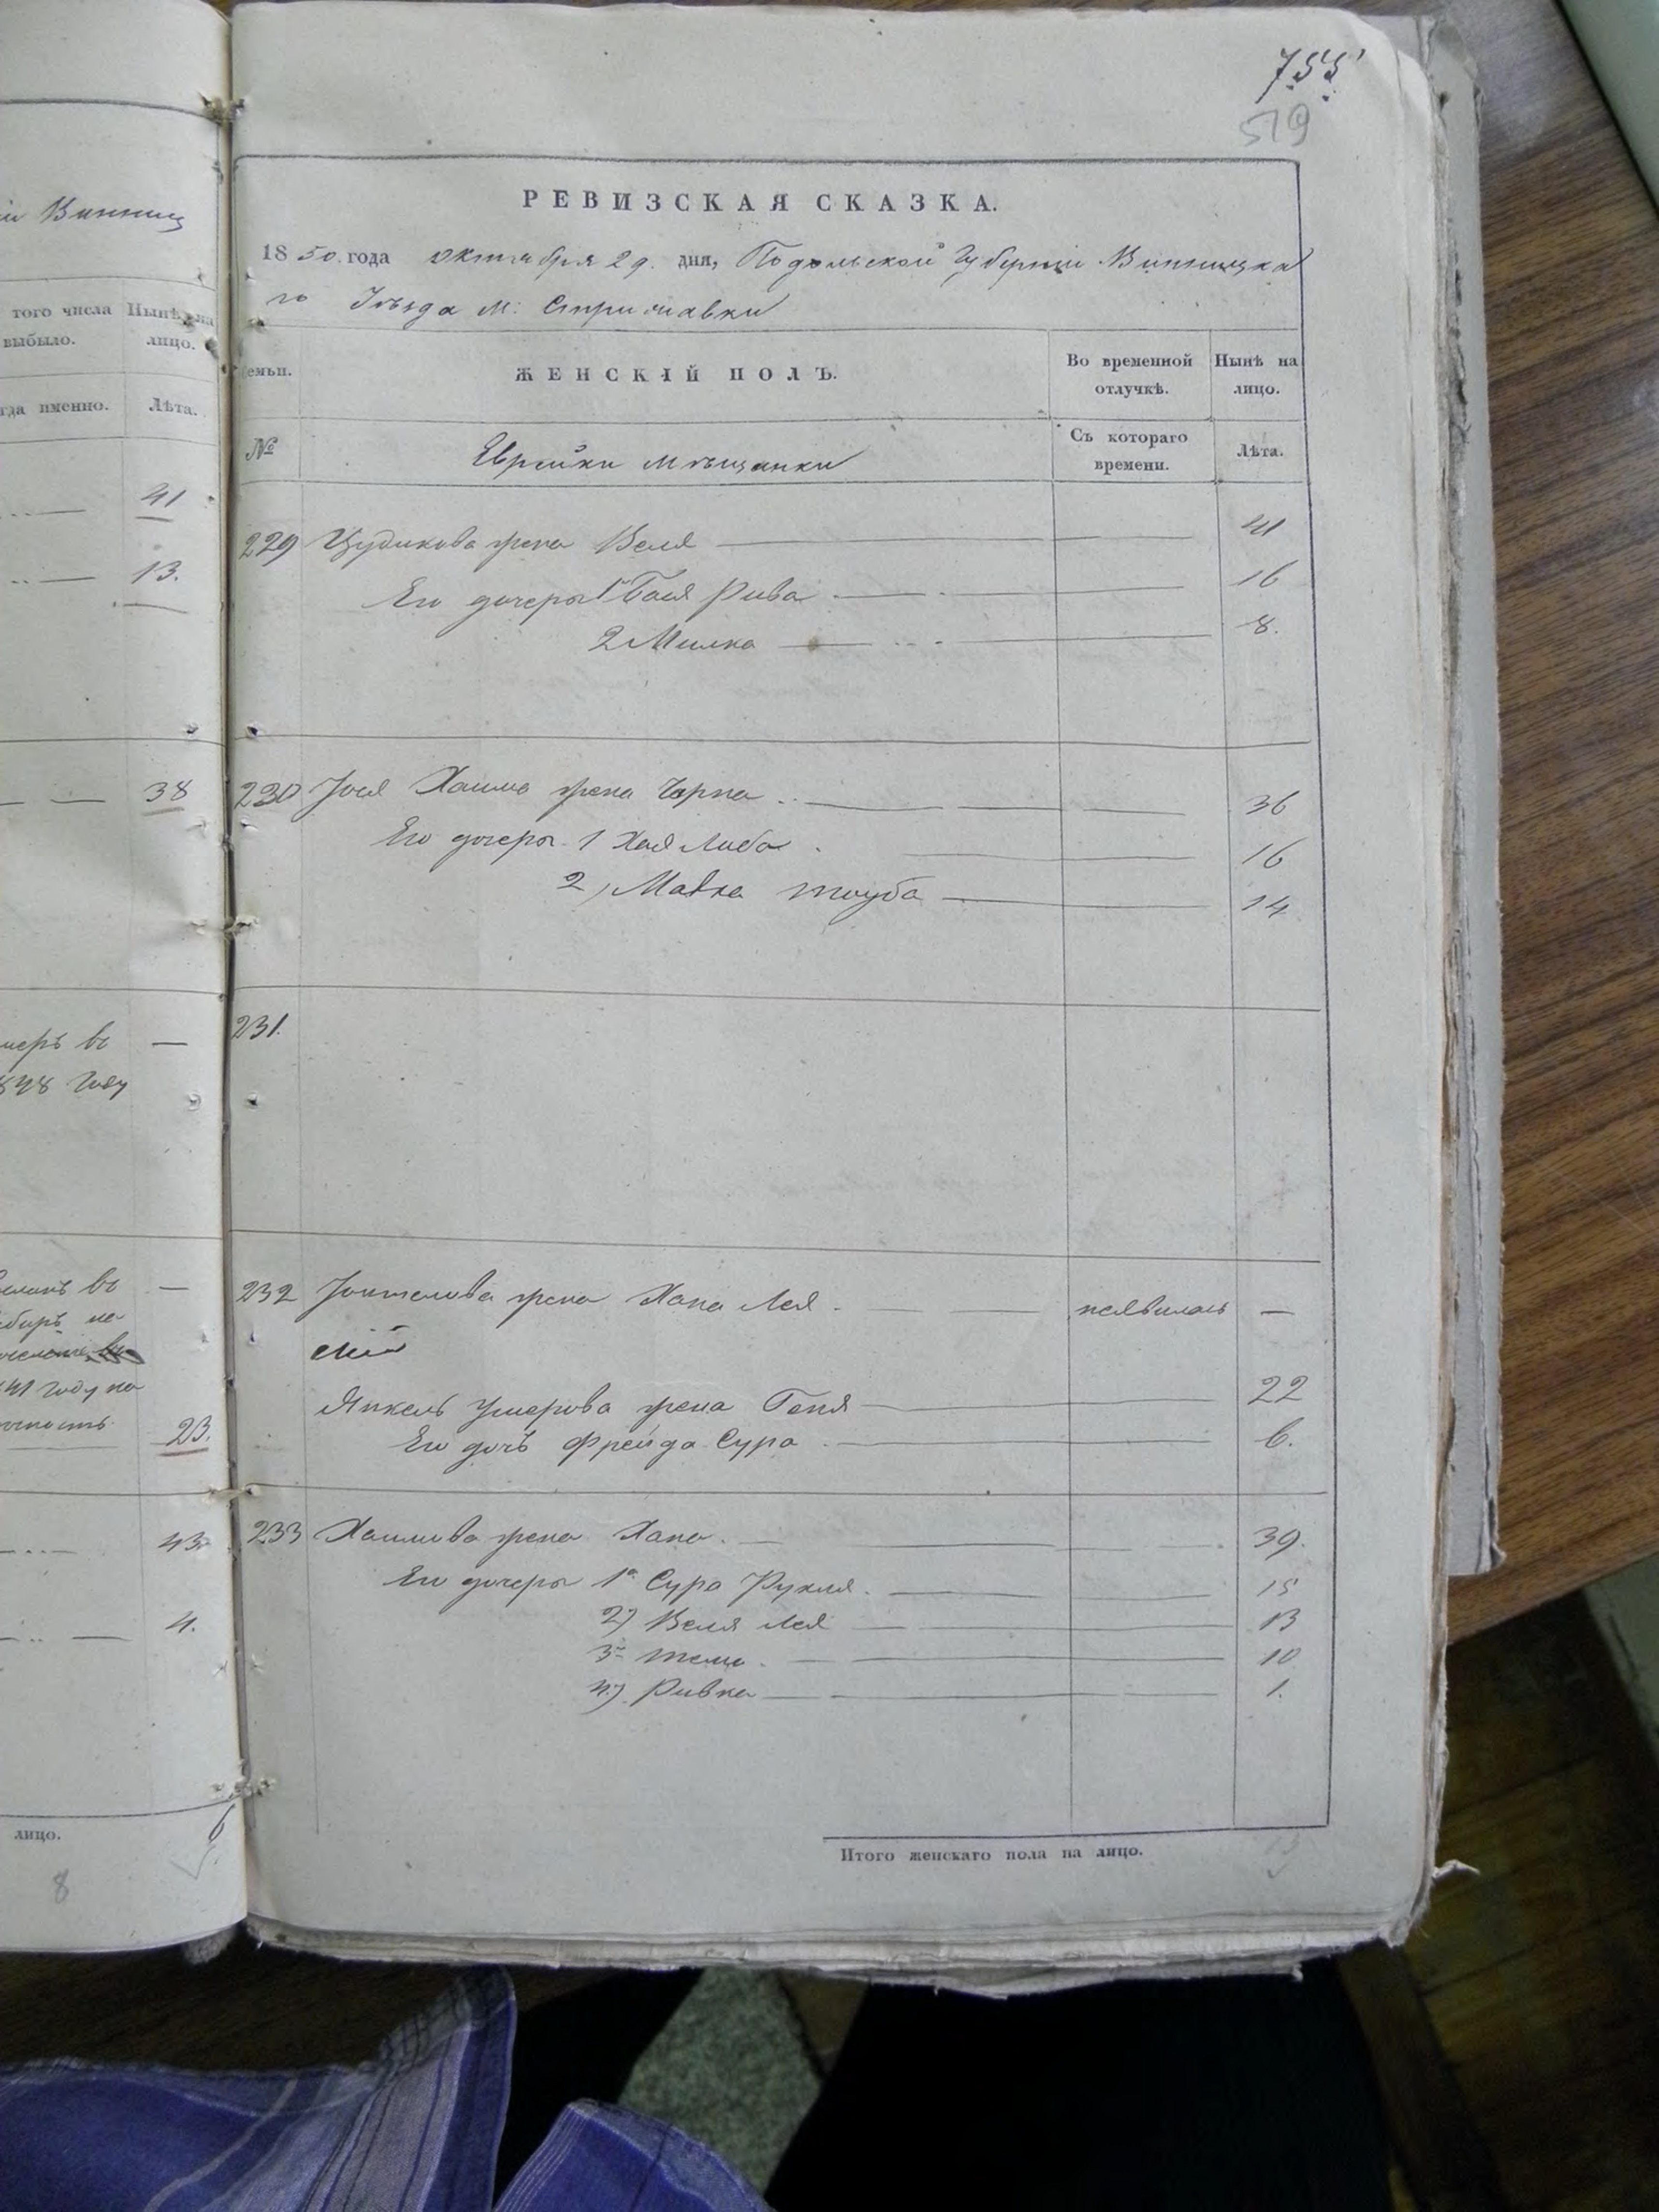 й Винниц
того числа Нынѣ на
выбыло. лицо.
гда именно. Лѣта.
41
13.
38
меръ въ —
848 году
въ —
41 году на
23.
43
4.
лицо. 6
8
755
519
РЕВИЗСКАЯ СКАЗКА.
1850. года октября 29. дня, Подольской Губерніи Винницка
го Уѣзда М: Стрижавки
Семьи. ЖЕНСКІЙ ПОЛЪ. Во временной отлучкѣ. Нынѣ на лицо.
№ Еврейки мѣщанки Съ котораго времени. Лѣта.
229 Цудикова жена Веля 41
Его дочеры 1 Бася Рива 16
2 Милка 8.
230 Іося Хаима жена Чарна 36
Его дочеры 1 Хая Либа 16
2, Малка тауба 14
231.
232 жена Хана Лея неявилась —
Янкель Умерова жена Геня 22
Его дочь Фрейда Сура 6.
233 Хаимова жена Хана 39.
Его дочеры 1е Сура Рухля 15
2) Веля Лея 13
3е 10
4) Ривка 1.
Итого женскаго пола на лицо.